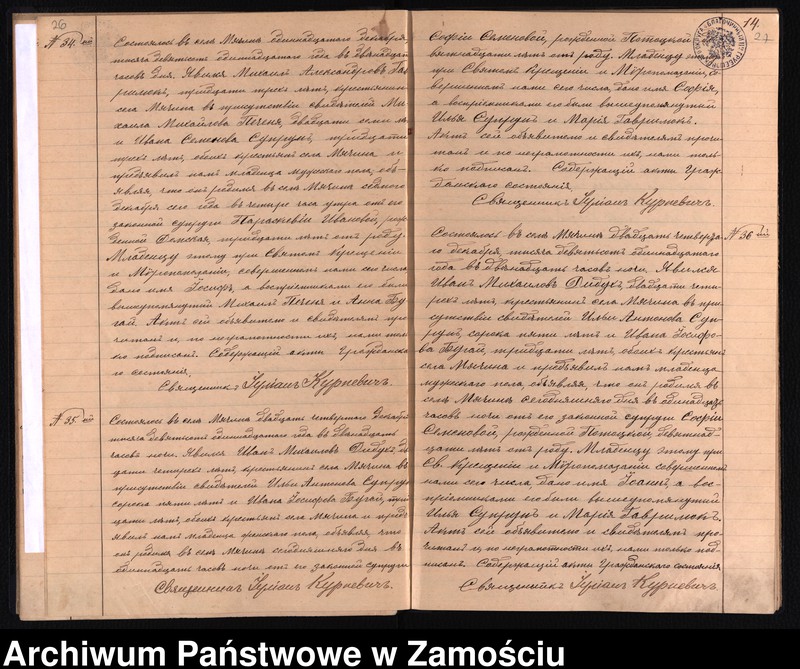 26
№ 34.
Состоялось въ селѣ Мячинѣ одиннадцатаго Декабря
тысяча девятьсотъ одиннадцатаго года въ двѣнадцать
часовъ дня. Явился Михаилъ Александровъ Гав
рилюкъ, тридцати трехъ лѣтъ, крестьянинъ
села Мячина въ присутствіи свидѣтелей Ми-
хаила Михайлова Печеня, двадцати лѣтъ
и Ивана Семенова Супрунъ, тридцати
трехъ лѣтъ, обоихъ крестьянъ села Мячина и
предъявилъ намъ младенца мужского пола, объ-
являя, что онъ родился въ селѣ Мячинѣ седьмого
Декабря сего года въ четыре часа утра отъ его
законной супруги Параскевіи Ивановой, рож
денной тридцати лѣтъ отъ роду.
Младенцу этому при Святомъ Крещеніи
и Мѵропомазаніи, совершенномъ нами сего числа
дано имя Іосифъ, а воспріемниками его были
вышеупомянутый Михаилъ Печеня и Анна Бу-
гай. Актъ сей объявителю и свидѣтелямъ про
читанъ и, по неграмотности ихъ, нами толь
ко подписанъ. Содержащій акты Гражданска
го состоянія.
Священникъ Іуліанъ Курпевичъ.
№ 35.
Состоялось въ селѣ Мячинѣ двадцать четвертаго Декабря
тысяча девятьсотъ одиннадцатаго года въ двѣнадцать
часовъ ночи. Явился Иванъ Михаиловъ Дибукъ, два
дцати четырехъ лѣтъ, крестьянинъ села Мячина въ
присутствіи свидѣтелей Ильи Антонова Супрунъ
сорока пяти лѣтъ и Ивана Іосифова Бугай, трид
цати лѣтъ, обоихъ крестьянъ села Мячина и предъ
явилъ намъ младенца женскаго пола, объявляя, что
онъ родился въ селѣ Мячинѣ сегодняшняго дня въ
одиннадцать часовъ ночи отъ его законной супруги
Священникъ Іуліанъ Курпевичъ.
14.
27
Софіи Семеновой, рожденной Потоцкой
девятнадцати лѣтъ отъ роду. Младенцу этому
при Святомъ Крещеніи и Мѵропомазаніи, со
вершенномъ нами сего числа, дано имя Софія,
а воспріемниками его были вышеупомянутый
Илья Супрунъ и Марія Гаврилюкъ.
Актъ сей объявителю и свидѣтелямъ прочи
танъ и по неграмотности ихъ, нами толь
ко подписанъ. Содержащій акты Граж-
данскаго состоянія.
Священникъ Іуліанъ Курпевичъ.
№ 36
Состоялось въ селѣ Мячинѣ двадцать четверта-
го декабря, тысяча девятьсотъ одиннадцатаго
года въ двѣнадцать часовъ ночи. Явился
Иванъ Михаиловъ Дибукъ, двадцати четы-
рехъ лѣтъ, крестьянинъ села Мячина въ при-
сутствіи свидѣтелей Ильи Антонова Суп-
рунъ, сорока пяти лѣтъ и Ивана Іосифо-
ва Бугай, тридцати лѣтъ, обоихъ крестьянъ
села Мячина и предъявилъ намъ младенца
мужскаго пола, объявляя, что онъ родился въ
селѣ Мячинѣ сегодняшняго дня въ одиннадцать
часовъ ночи отъ его законной супруги Софіи
Семеновой, рожденной Потоцкой, девятнад-
цати лѣтъ отъ роду. Младенцу этому при
Св. Крещеніи и Мѵропомазаніи совершенномъ
нами сего числа, дано имя Іоаннъ, а вос-
пріемниками его были вышеупомянутый
Илья Супрунъ и Марія Гаврилюкъ.
Актъ сей объявителю и свидѣтелямъ про-
читанъ и, по неграмотности ихъ, нами только под-
писанъ. Содержащій акты Гражданскаго состоянія
Священникъ Іуліанъ Курпевичъ.
Archiwum Państwowe w Zamościu